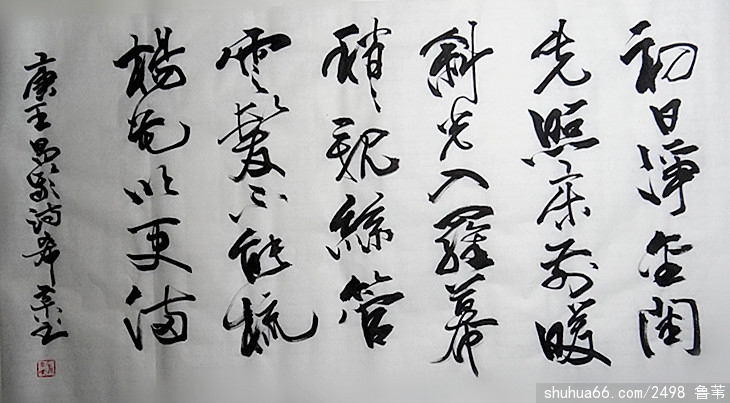 初日淨金閨
先照床前暖
斜光入羅幕
稍稍親絲管
雲髮不能梳
楊花吹更滿
唐王昌齡詩
shuhua66.com/2498 鲁苇